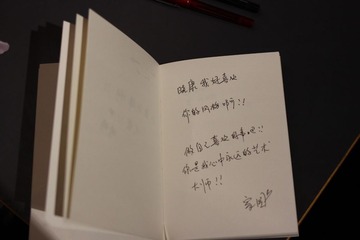 晓康 我好喜欢
你的
做自己喜欢的事吧!!
你是我心中永远的艺术
大师!!